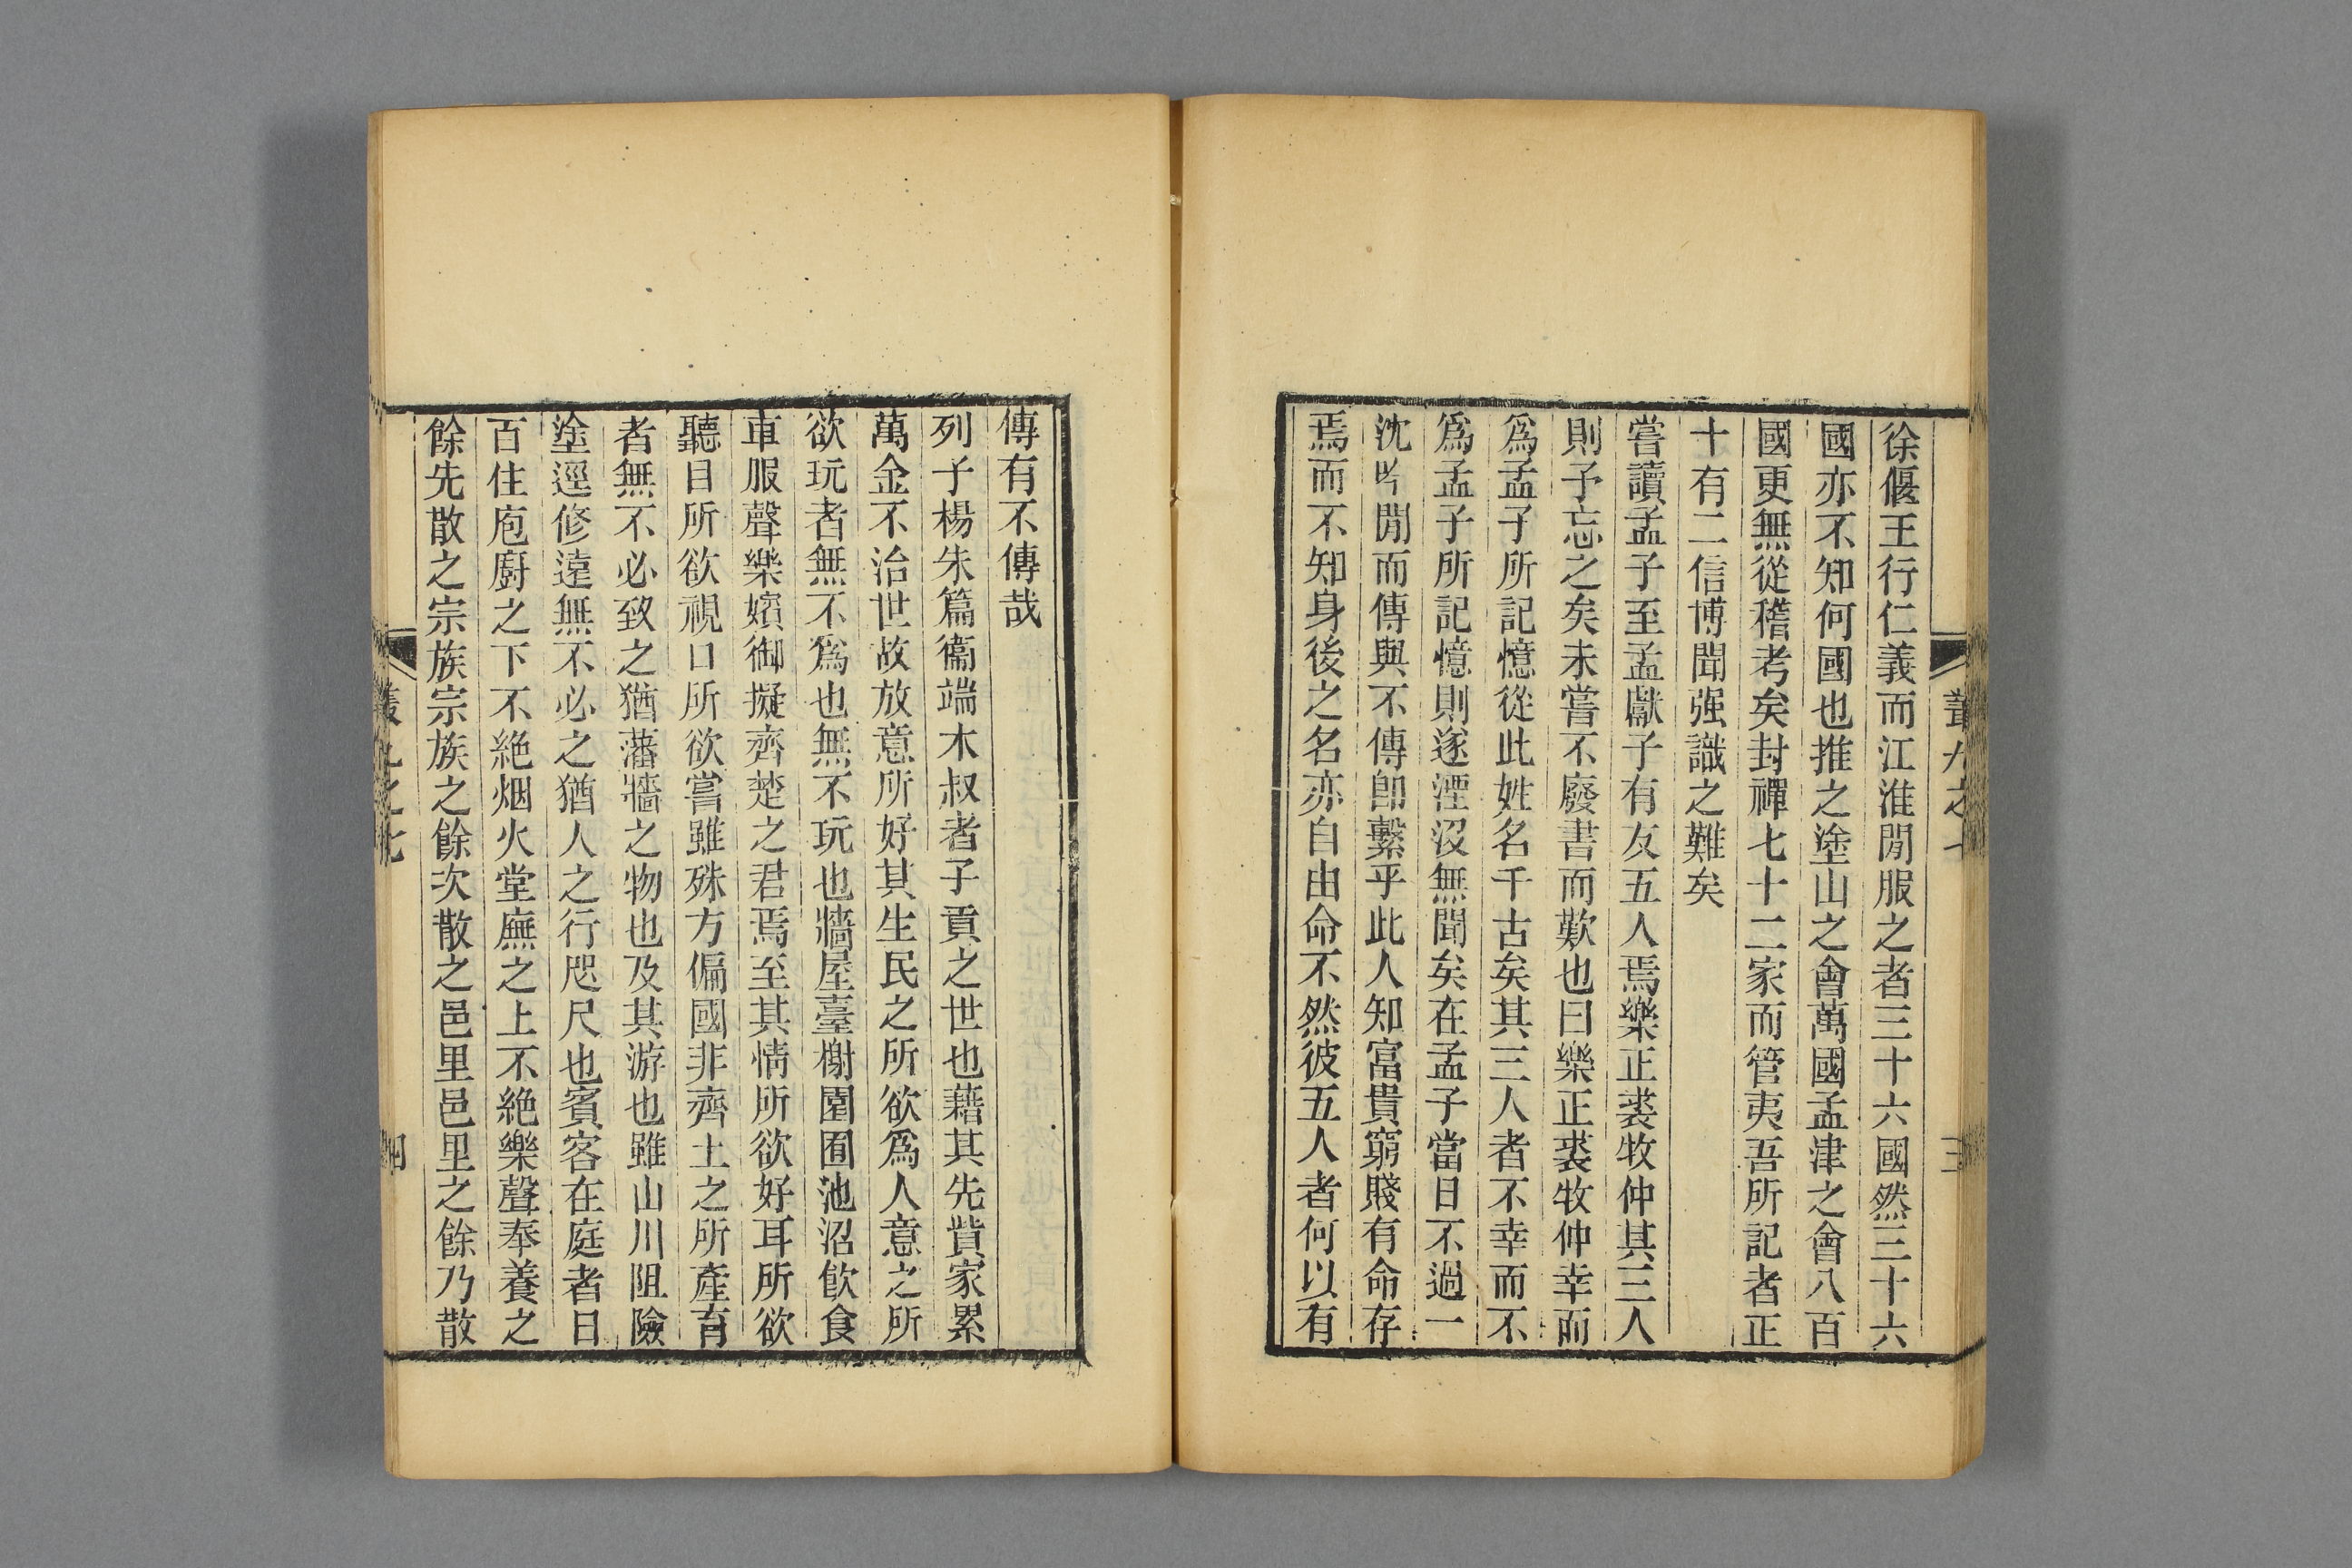 徐偃王行仁義而江淮閒服之者三十六國然三十六
國亦不知何國也推之塗山之會萬國孟津之會八百
國更無從稽考矣封禪七十二家而管夷吾所記者正
十有二信博聞强識之難矣
嘗讀孟子至孟獻子有友五人焉樂正裘牧仲其三人
則予忘之矣未嘗不廢書而歎也曰樂正裘牧仲幸而
爲孟子所記憶從此姓名千古矣其三人者不幸而不
爲孟子所記憶則遂湮沒無聞矣在孟子當日不過一
沈吟閒而傳與不傳卽繫乎此人知富貴窮賤有命存
焉而不知身後之名亦自由命不然彼五人者何以有
傳有不傳哉
列子楊朱篇衞端木叔者子貢之世也藉其先貲家累
萬金不治世故放意所好其生民之所欲爲人意之所
欲玩者無不爲也無不玩也牆屋臺榭園囿池沼飮食
車服聲樂嬪御擬齊楚之君焉至其情所欲好耳所欲
聽目所欲視口所欲嘗雖殊方偏國非齊土之所產育
者無不必致之猶藩牆之物也及其游也雖山川阻險
塗逕修遠無不必之猶人之行咫尺也賓客在庭者日
百住庖廚之下不絶烟火堂廡之上不絶樂聲奉養之
餘先散之宗族宗族之餘次散之邑里邑里之餘乃散
叢九之七
四